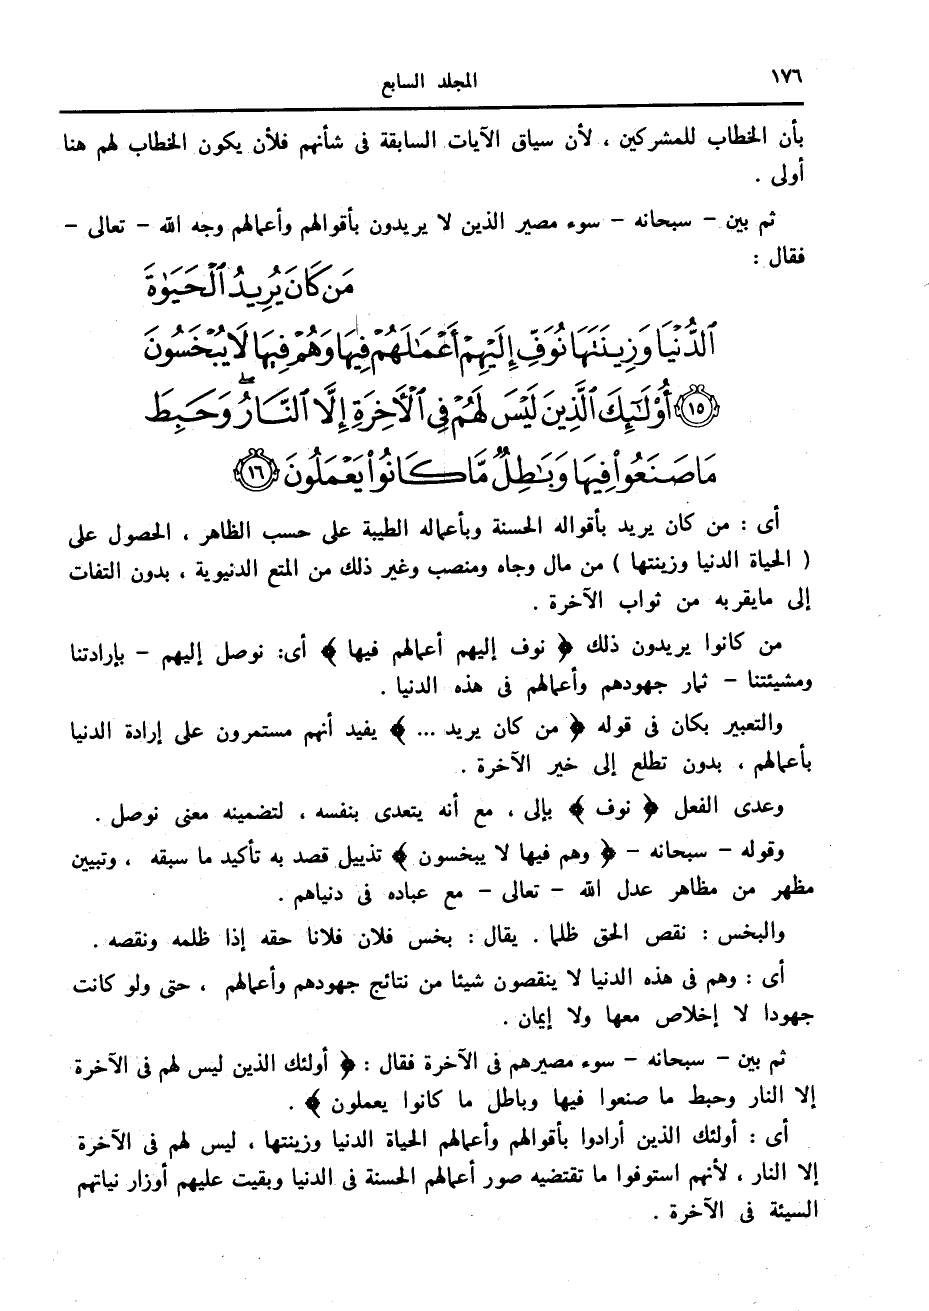 ١٧٦
المجلد السابع
بأن الخطاب للمشركين ، لأن سياق الآيات السابقة فى شأنهم فلأن يكون الخطاب لهم هنا
أولى .
ثم بين – سبحانه – سوء مصير الذين لا يريدون بأقوالهم وأعمالهم وجه الله – تعالى –
فقال :
مَن كَانَ يُرِيدُ ٱلْحَيَوٰةَ
ٱلدُّنْيَا وَزِينَتَهَا نُوَفِّ إِلَيْهِمْ أَعْمَٰلَهُمْ فِيهَا وَهُمْ فِيهَا لَا يُبْخَسُونَ
﴿١٥﴾ أُو۟لَٰٓئِكَ ٱلَّذِينَ لَيْسَ لَهُمْ فِى ٱلْأَخِرَةِ إِلَّا ٱلنَّارُ ۖ وَحَبِطَ
مَا صَنَعُوا۟ فِيهَا وَبَٰطِلٌ مَّا كَانُوا۟ يَعْمَلُونَ ﴿١٦﴾
أى : من كان يريد بأقواله الحسنة وبأعماله الطيبة على حسب الظاهر ، الحصول على
( الحياة الدنيا وزينتها ) من مال وجاه ومنصب وغير ذلك من المتع الدنيوية ، بدون التفات
إلى مايقربه من ثواب الآخرة .
من كانوا يريدون ذلك ﴿ نوف إليهم أعمالهم فيها ﴾ أى: نوصل إليهم – بإرادتنا
ومشيئتنا – ثمار جهودهم وأعمالهم فى هذه الدنيا .
والتعبير بكان فى قوله ﴿ من كان يريد ... ﴾ يفيد أنهم مستمرون على إرادة الدنيا
بأعمالهم ، بدون تطلع إلى خير الآخرة .
وعدى الفعل ﴿ نوف ﴾ بإلى ، مع أنه يتعدى بنفسه ، لتضمينه معنى نوصل .
وقوله – سبحانه – ﴿ وهم فيها لا يبخسون ﴾ تذييل قصد به تأكيد ما سبقه ، وتبيين
مظهر من مظاهر عدل الله – تعالى – مع عباده فى دنياهم .
والبخس : نقص الحق ظلما . يقال : بخس فلان فلانا حقه إذا ظلمه ونقصه .
أى : وهم فى هذه الدنيا لا ينقصون شيئا من نتائج جهودهم وأعمالهم ، حتى ولو كانت
جهودا لا إخلاص معها ولا إيمان .
ثم بين – سبحانه – سوء مصيرهم فى الآخرة فقال : ﴿ أولئك الذين ليس لهم فى الآخرة
إلا النار وحبط ما صنعوا فيها وباطل ما كانوا يعملون ﴾ .
أى : أولئك الذين أرادوا بأقوالهم وأعمالهم الحياة الدنيا وزينتها ، ليس لهم فى الآخرة
إلا النار ، لأنهم استوفوا ما تقتضيه صور أعمالهم الحسنة فى الدنيا وبقيت عليهم أوزار نياتهم
السيئة فى الآخرة .